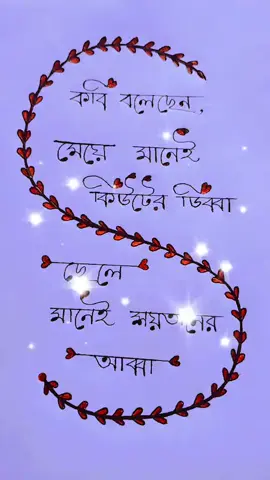 কবি বলেছেন,
মেয়ে মানেই
কিউটের ডিব্বা
ছেলে
মানেই শয়তানের
আব্বা